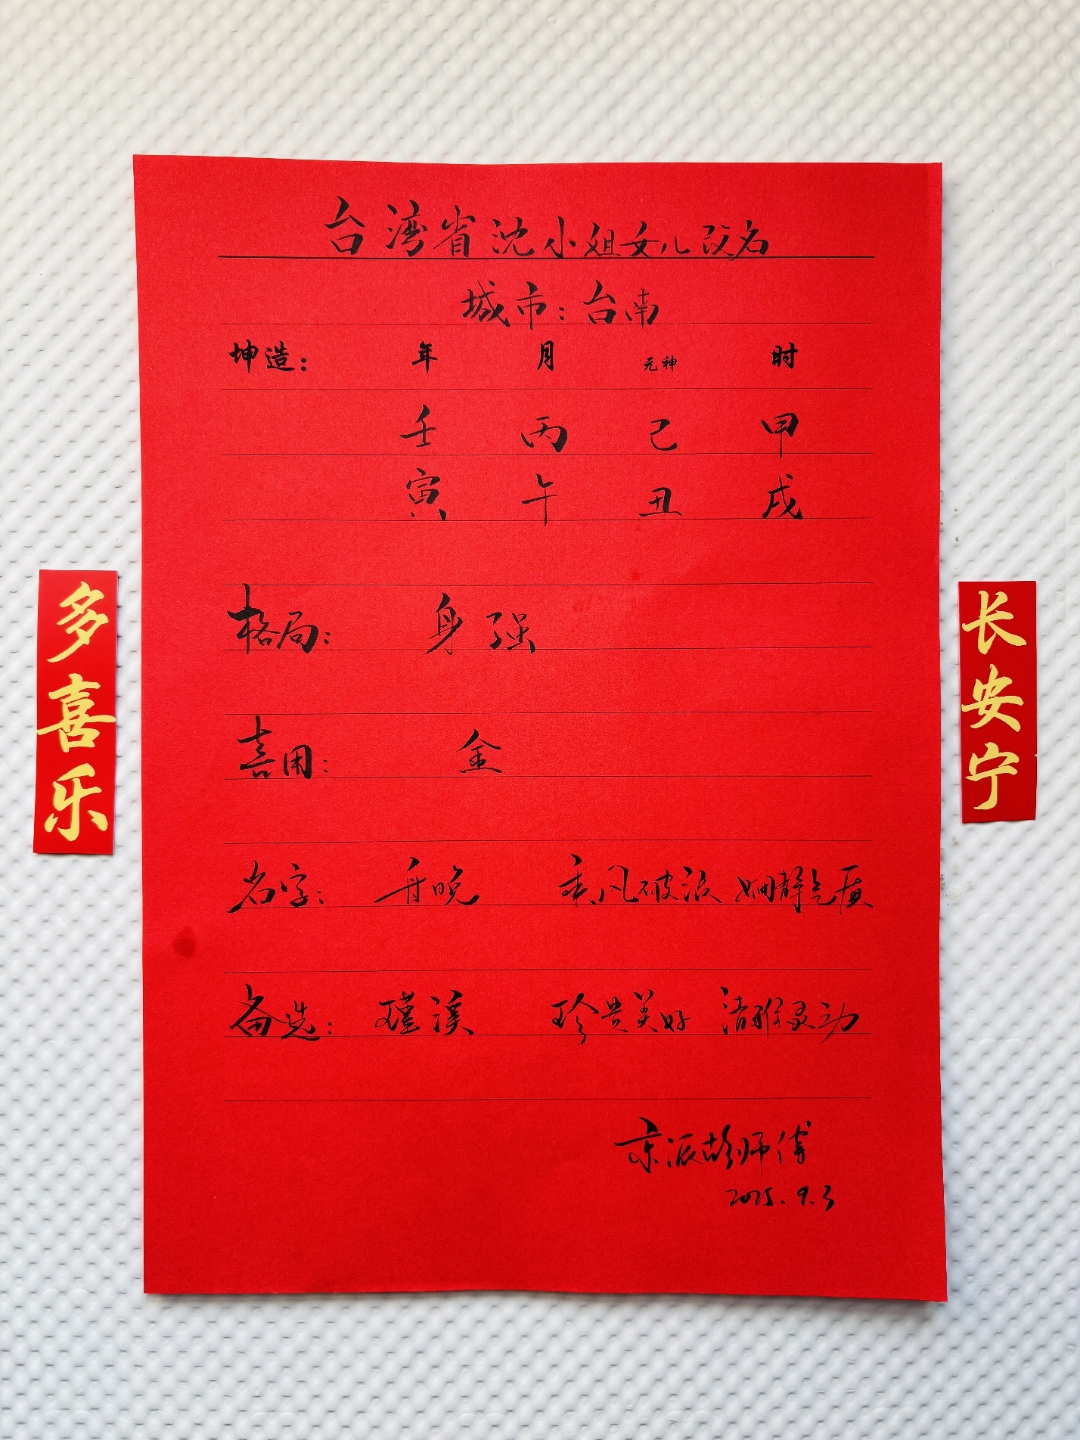 台湾省沈小姐女儿改名
城市：台南
坤造： 年 月 元神 时
壬 丙 己 甲
寅 午 丑 戌
格局： 身强
喜用： 金
名字： 舟晚 乘风破浪 娴静气质
备选： 瑾溪 珍贵美好 清雅灵动
京派胡师傅
2025.9.3
多喜乐
长安宁